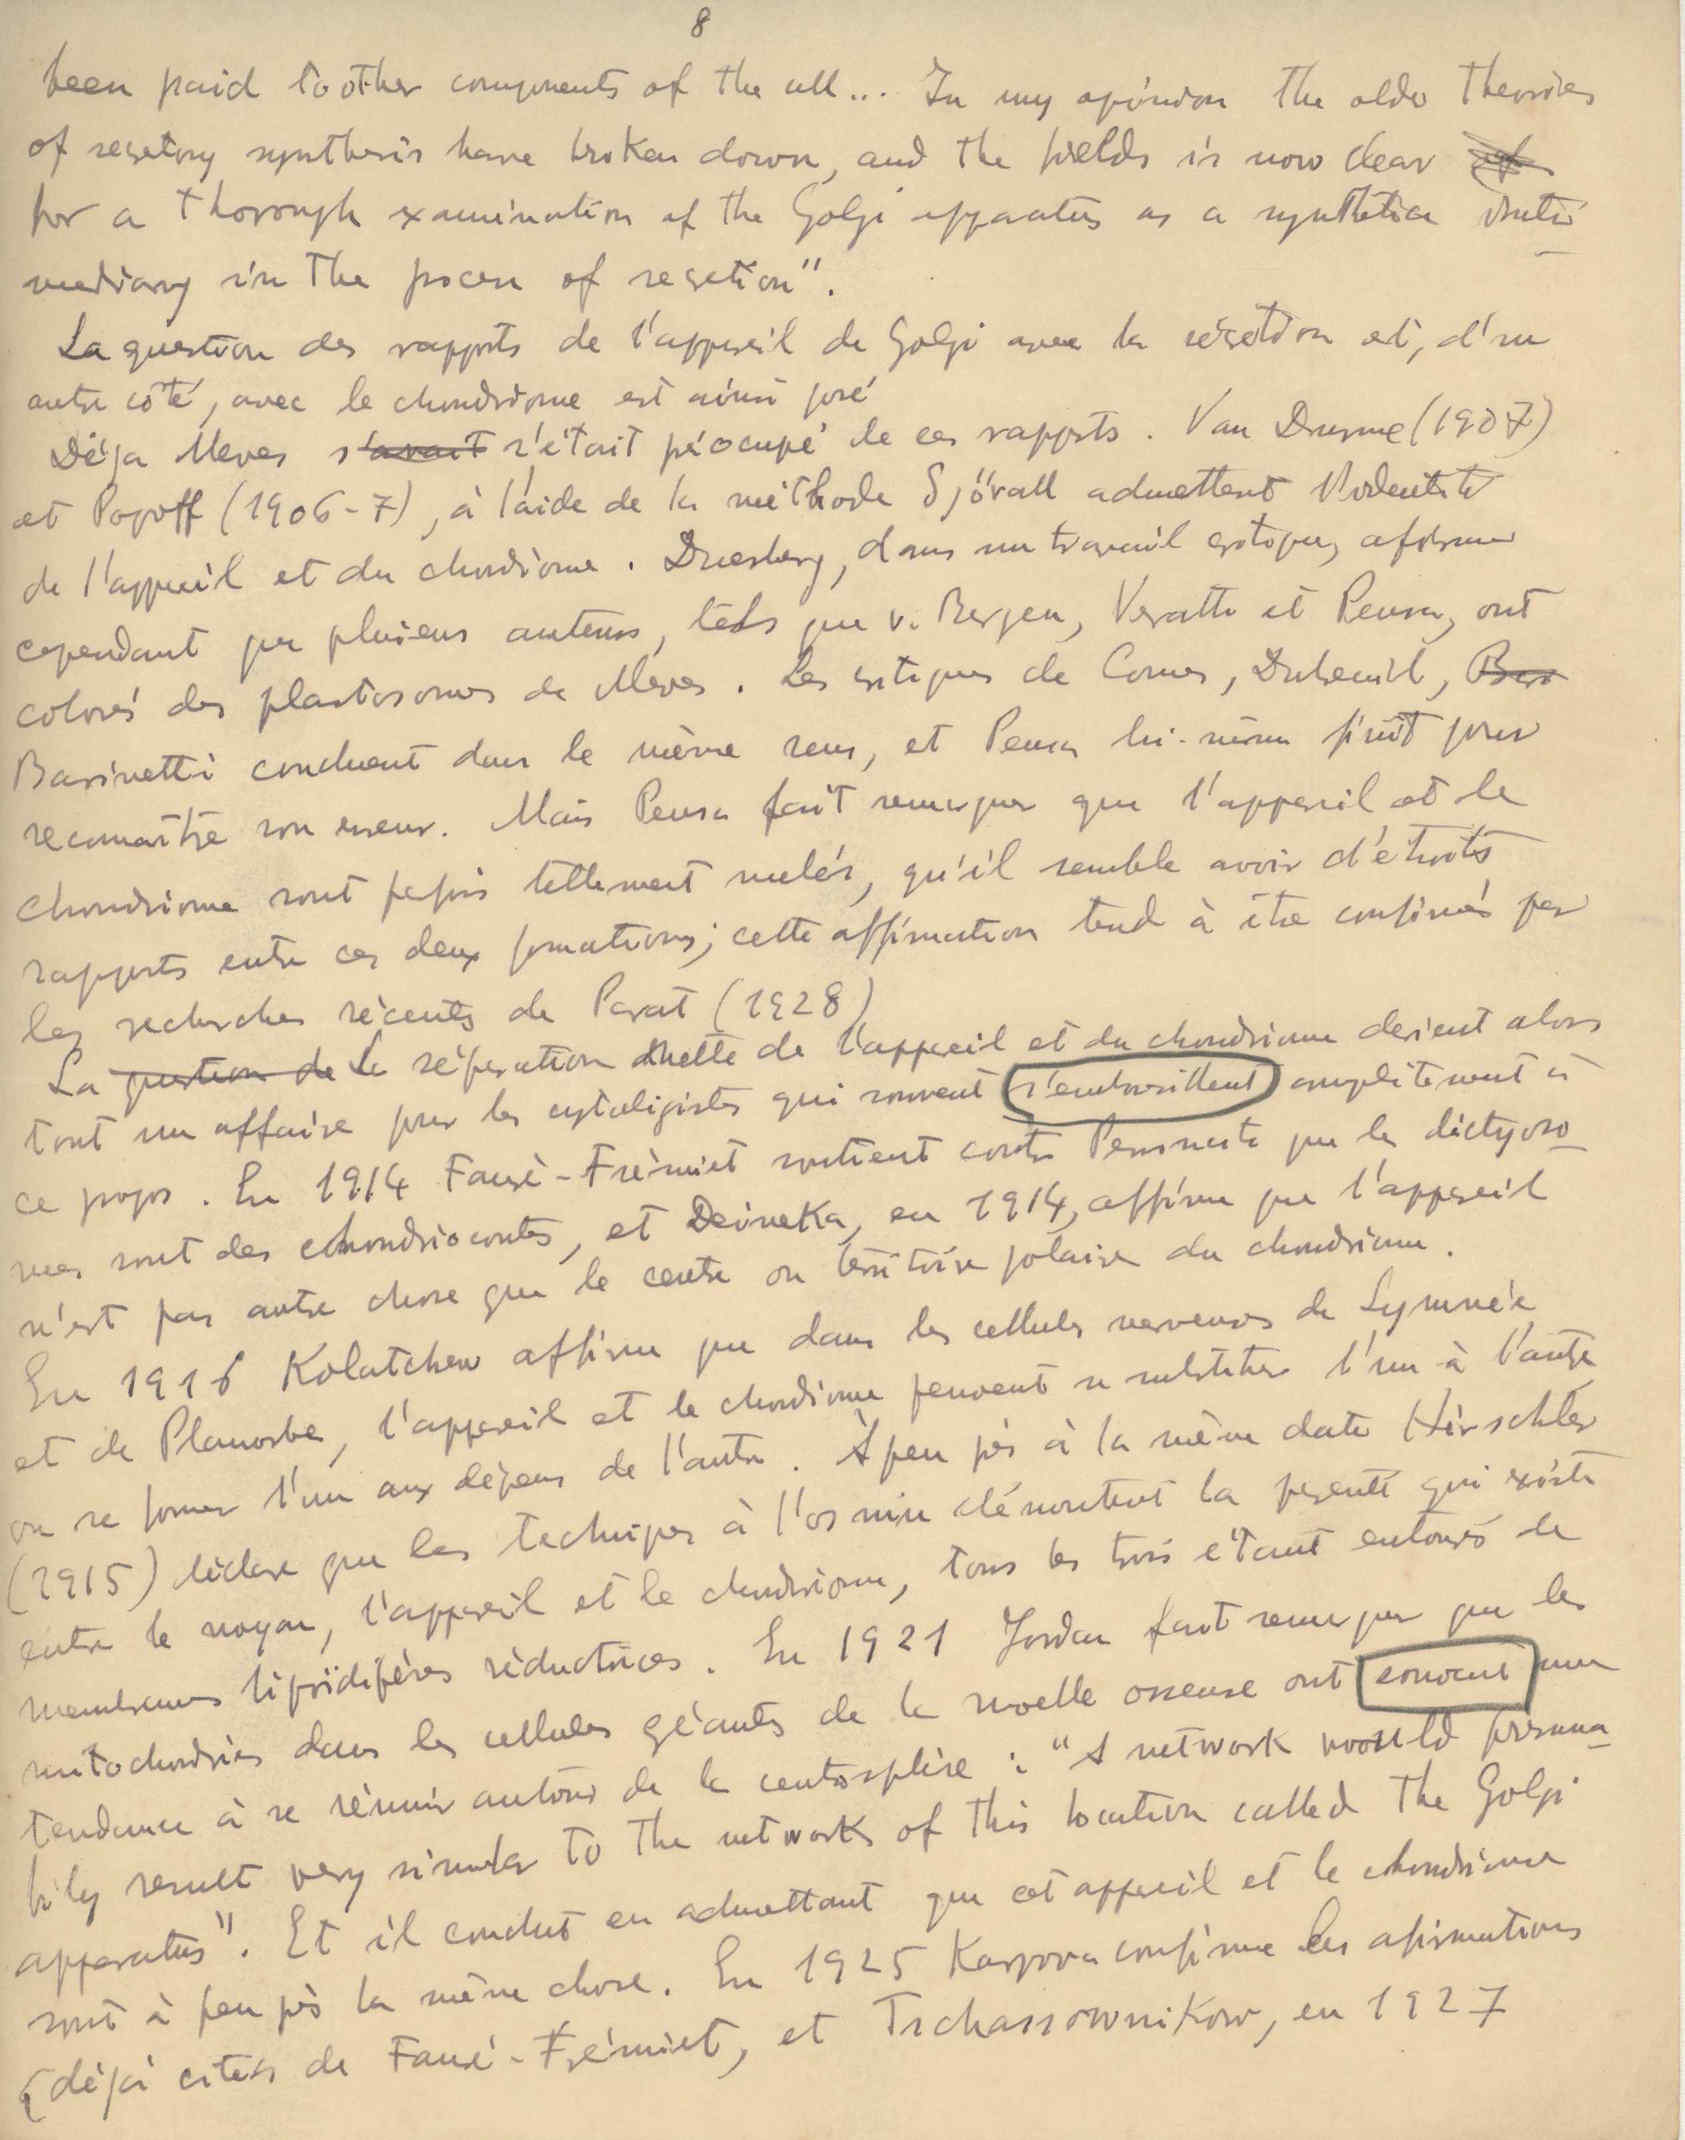 8
been paid to other components of the cell... In my opinion the older theories
of secretory synthesis have broken down, and the fields is now clear
for a thorough examination of the Golgi apparatus as a synthetica inter
mediary in the process of secretion".
La question des rapports de l'appareil de Golgi avec la sécrétion et, d'un
autre côté, avec le chondriome est ainsi posé
Déja Meves s'avait s'était préocupé de ces rapports. Van Durme (1907)
et Popoff (1906-7), à l'aide de la méthode Sjövall admettent l'identité
de l'appareil et du chondriome. Duesberg, dans un travail critique, affirme
cependant que plusieurs auteurs, tels que v. Bergen, Veratti et Pensa, ont
coloré des plastosomes de Meves. Les critiques de Comes, Dubreuil,
Barinetti concluent dans le même sens, et Pensa lui-même finit pour
reconnaître son erreur. Mais Pensa fait remarquer que l'appareil et le
chondriome sont pafois tellement melés, qu'il semble avoir d'étroits
rapports entre ces deux formations; cette affirmation tend à être confirmés par
les recherches récents de Parat (1928)
La question de La séparation nette de l'appareil et du chondriome devient alors
tout un affaire pour les cytoligistes qui souvent s'embrouillent complètement à
ce propos. En 1914 Fauré-Frémiet soutient contre Perroncito que le dictyoso
mes sont des chondriocontes, et Deineka, en 1914, affirme que l'appareil
n'est pas autre chose que le centre ou territoire polaire du chondriome.
En 1916 Kolatchew affirme que dans les cellules nerveuses de Lymnée
et de Planorbe, l'appareil et le chondriome peuvent se substituer l'un à l'autre
ou se former l'un aux dépens de l'autre. À peu près à la même date Hirschler
(1915) déclare que les techniques à l'osmiu démontrent la parenté qui existe
entre le noyau, l'appareil et le chondriome, tous les trois étant entourés de
membranes lipoïdifères réductrices. En 1921 Jordan fait remarquer que les
mitochondries dans les cellules géants de la moelle osseuse ont souvent une
tendance à se réunir autour de la centrosphère: "A network would presuma
bily result very similar to the networks of this location called the Golgi
apparatus". Et il conclut en admettant que cet appareil et le chondriome
sont à peu près la même chose. En 1925 Karpova confirme les afirmations
déjà cités de Fauré-Frémiet, et Tschassownikow, en 1927